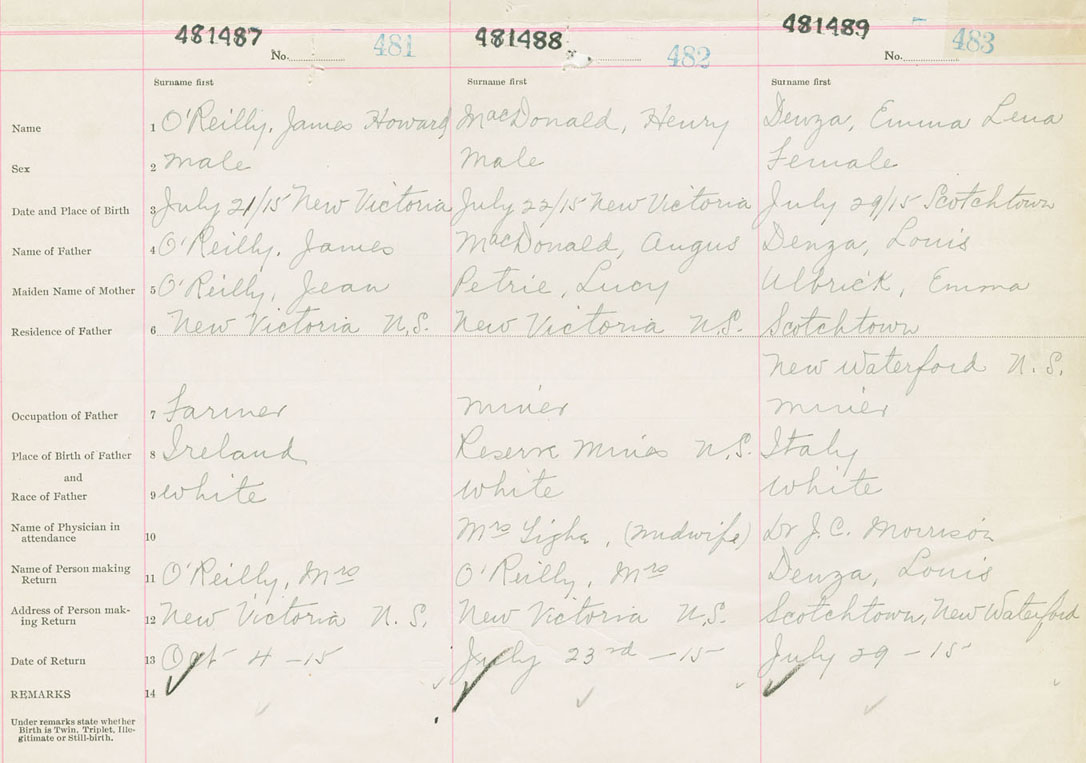 481487 No. 481 481488 482 481489 No. 483
Surname first Surname first Surname first
Name 1 O'Reilly, James Howard MacDonald, Henry Denza, Emma Lena
Sex 2 Male Male Female
Date and Place of Birth 3 July 21/15 New Victoria July 22/15 New Victoria July 29/15 Scotchtown
Name of Father 4 O'Reilly, James MacDonald, Angus Denza, Louis
Maiden Name of Mother 5 O'Reilly, Jean Petrie, Lucy Ulbrick, Emma
Residence of Father 6 New Victoria N.S. New Victoria N.S. Scotchtown
New Waterford N.S.
Occupation of Father 7 Farmer Miner Miner
Place of Birth of Father 8 Ireland Reserve Mines N.S. Italy
and
Race of Father 9 White White White
Name of Physician in
attendance 10 Mrs (Midwife) Dr J.C. Morrison
Name of Person making
Return 11 O'Reilly, Mrs O'Reilly, Mrs Denza, Louis
Address of Person mak-
ing Return 12 New Victoria N.S. New Victoria N.S. Scotchtown, New Waterford
Date of Return 13 Oct 4 - 15 July 23rd - 15 July 29 - 15
REMARKS 14
Under remarks state whether
Birth is Twin, Triplet, Ille-
gitimate or Still-birth.